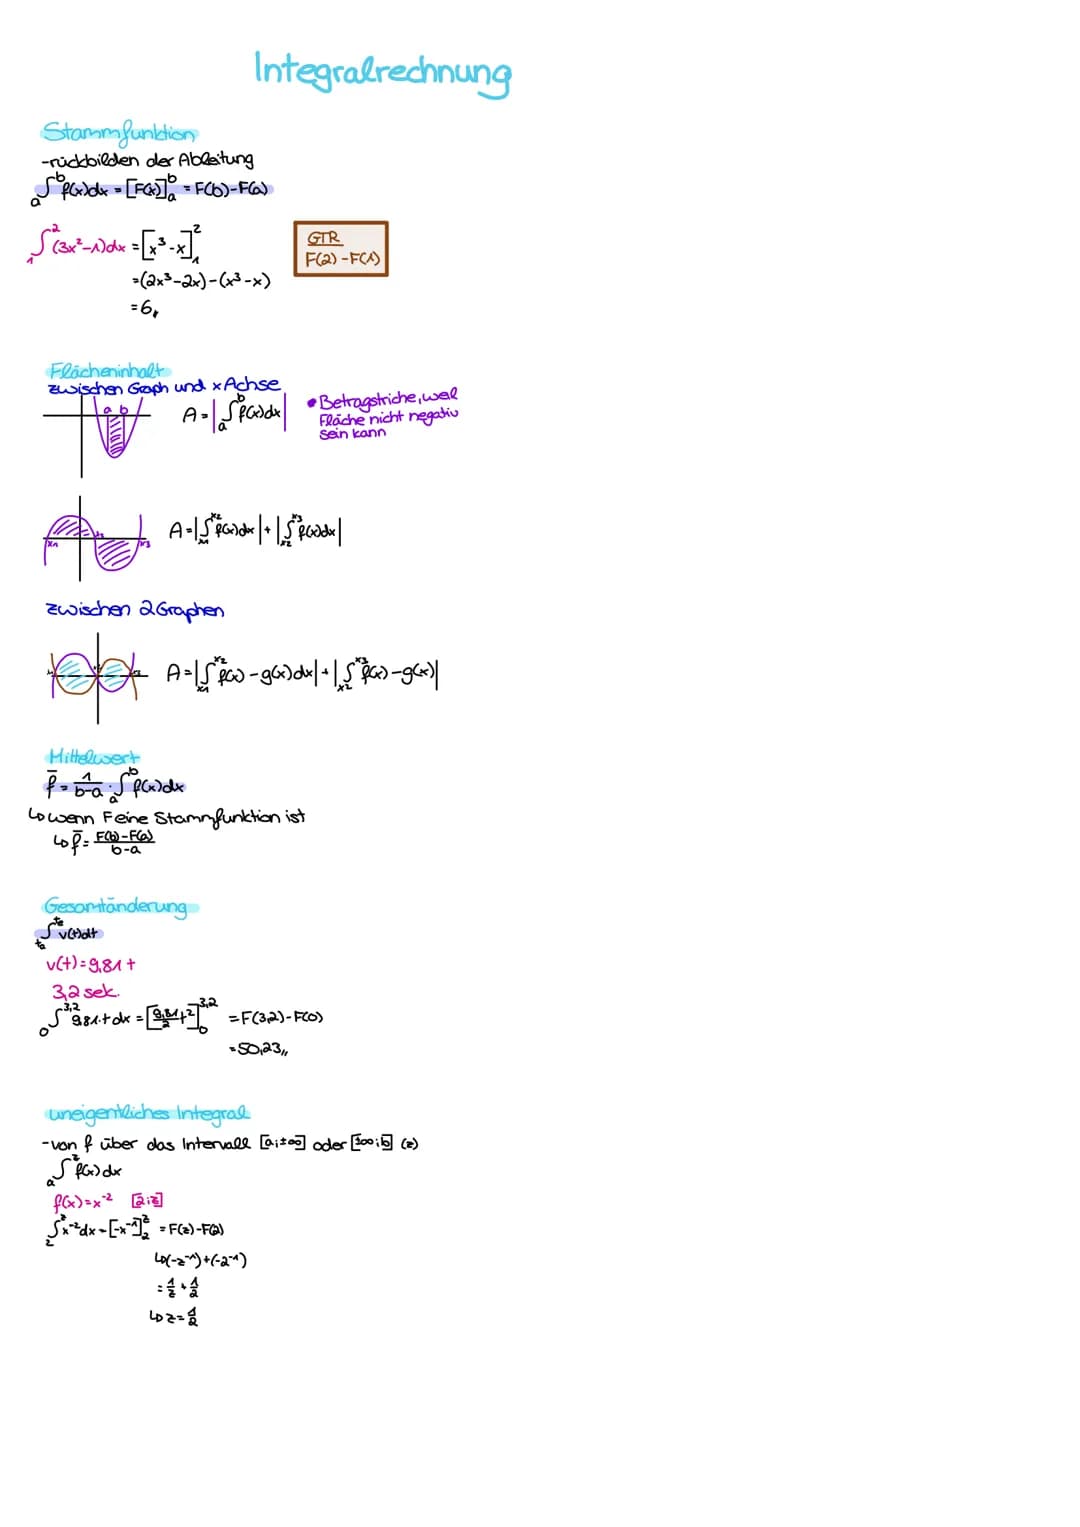 Integralrechnung
Stammfunktion
-rückbilden der Ableitung
∫ₐᵇ f(x)dx = [F(x)]ₐᵇ = F(b)-F(a)
∫₁² (3x²-1)dx = [x³-x]₁²
=(2x³-2x)-(x³-x)
=6,,
GTR
F(2)-F(1)
Flächeninhalt
zwischen Graph und x Achse
a b
A=|∫ₐᵇ f(x)dx|
• Betragstriche, weil
Fläche nicht negativ
sein kann
x1 x2 x3
A=|∫ₓ₁ˣ² f(x)dx|+|∫ₓ₂ˣ³ f(x)dx|
zwischen 2 Graphen
A=|∫ₓ₁ˣ² f(x)-g(x)dx|+|∫ₓ₂ˣ³ f(x)-g(x)|
Mittelwert
f̅ = 1/(b-a) · ∫ₐᵇ f(x)dx
↳ wenn F eine Stammfunktion ist
↳ f̅ = (F(b)-F(a))/(b-a)
Gesamtänderung
∫ₜₐᵗᵉ v(t)dt
v(t)=9,81t
3,2 sek.
∫₀³,² 9,81·t dx = [9,81/2 t²]₀³,² = F(3,2)-F(0)
=50,23,,
uneigentliches Integral
-von f über das Intervall [a;±∞] oder [±∞;b] (z)
∫ₐᶻ f(x)dx
f(x)=x⁻² [2;z]
∫₂ᶻ x⁻²dx=[-x⁻¹]₂ᶻ = F(z)-F(2)
↳(-z⁻¹)+(-2⁻¹)
= 1/z + 1/2
↳ z = 1/2